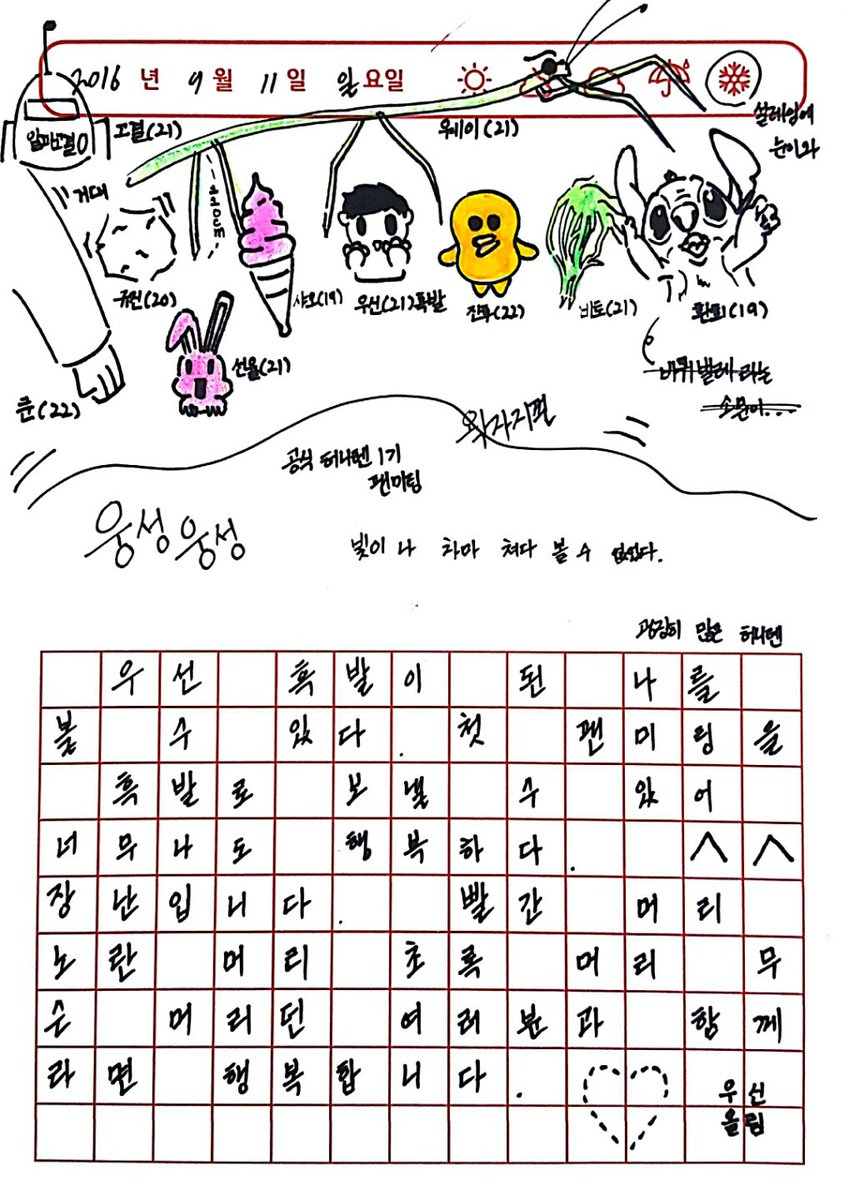 2016 년 9 월 11 일 일요일
설레임에
눈이와
알파고결0
고결(21)
웨이(21)
거대
220cm
규진(20)
샤오(19)
우신(21)흑발
진후(22)
비토(21)
환희(19)
선율(21)
쿤(22)
바퀴벌레 라는
소문이...
와자지껄
공식 허니텐 1기
팬미팅
웅성웅성
빛이 나 차마 쳐다 볼 수 없었다.
굉장히 많은 허니텐
우선 흑발이 된 나를
볼 수 있다. 첫 팬미링을
흑발로 보낼 수 있어
너무나도 행복하다. ^^
장난입니다. 빨간 머리
노란 머리 초록 머리 무
슨 머리던 여러분과 함께
라면 행복합니다.
우신
올림